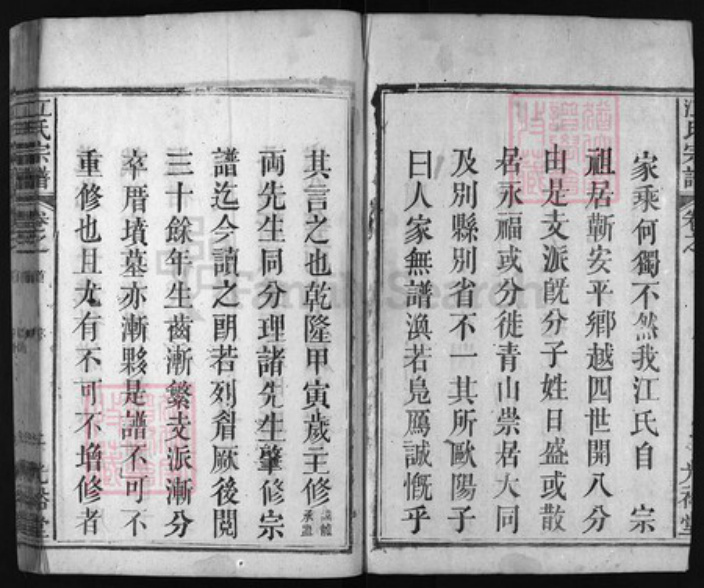 家乘何獨不然我江氏自　宗
祖居蘄安平鄉越四世開八分
由是支派旣分子姓日盛或散
居永福或分徙青山崇居大同
及別縣別省不一其所歐陽子
曰人家無譜渙若鳧鴈誠慨乎
其言之也乾隆甲寅歲主修
両先生同分理諸先生肇修宗
譜迄今讀之朗若列眉厥後閲
三十餘年生齒漸繁支派漸分
卒厝墳墓亦漸夥是譜不可不
重修也且尤有不可不增修者
江氏宗譜
卷之
光裕堂
江氏宗譜
卷之
光裕堂
FamilySearch